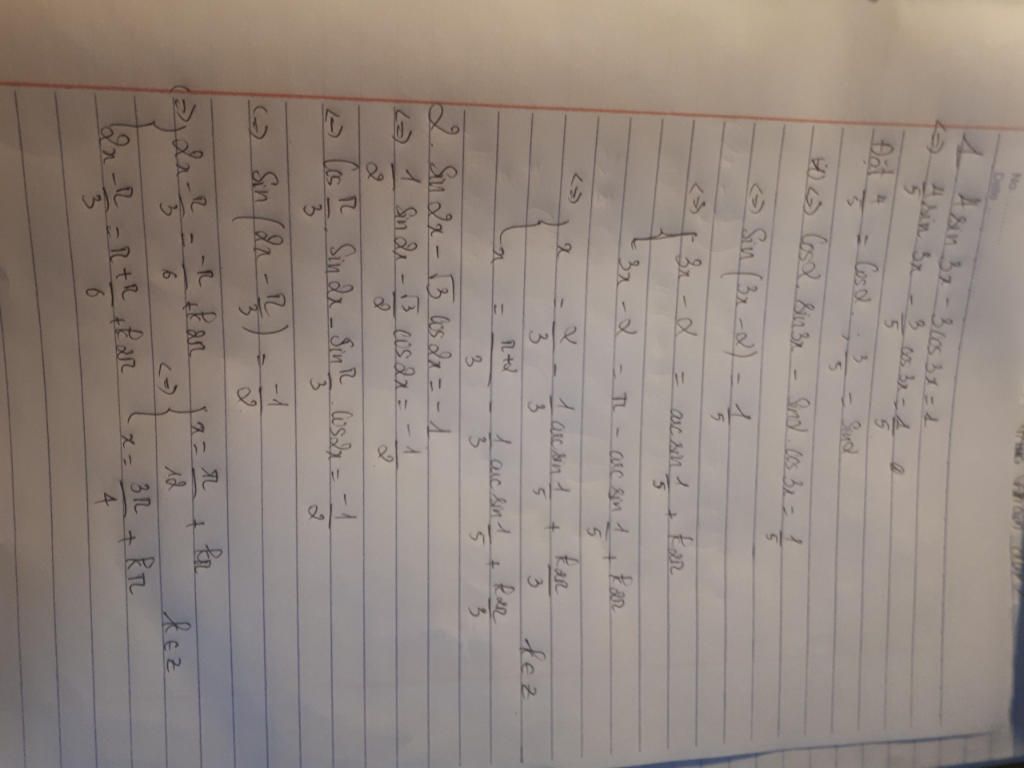 No.
Date
1 4 sin 3x - 3 cos 3x = 1
<=> 4/5 sin 3x - 3/5 cos 3x = 1/5
Đặt 4/5 = cos α ; 3/5 = sin α
(*) <=> cos α . sin 3x - sin α . cos 3x = 1/5
<=> sin (3x - α) = 1/5
<=> { 3x - α = acsin 1/5 + k2π
3x - α = π - acsin 1/5 + k2π
<=> { x = α/3 - 1/3 acsin 1/5 + k2π/3
x = π+α/3 - 1/3 acsin 1/5 + k2π/3 k ∈ Z
2. sin 2x - √3 cos 2x = -1
<=> 1/2 sin 2x - √3/2 cos 2x = -1/2
<=> cos π/3 . sin 2x - sin π/3 cos 2x = -1/2
<=> sin (2x - π/3) = -1/2
<=> { 2x - π/3 = -π/6 + k2π <=> { x = π/12 + kπ k ∈ Z
2x - π/3 = π + π/6 + k2π x = 3π/4 + kπ